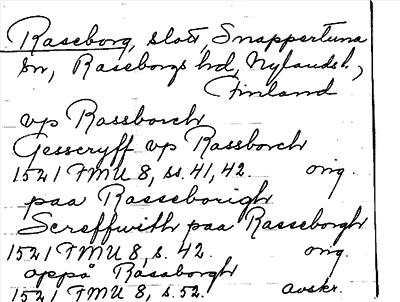 Raseborg, slott, Snappertuna
sn, Raseborgs hd, Nylands l.,
Finland
vp Rassborch
Gesscryff vp Rassborch
1521 FMU 8, ss. 41, 42. orig.
paa Rasseborigh
Screffwith paa Rasseborgh
1521 FMU 8, s. 42. orig.
oppå Rasaborgh
1521 FMU 8, s. 52. avskr.